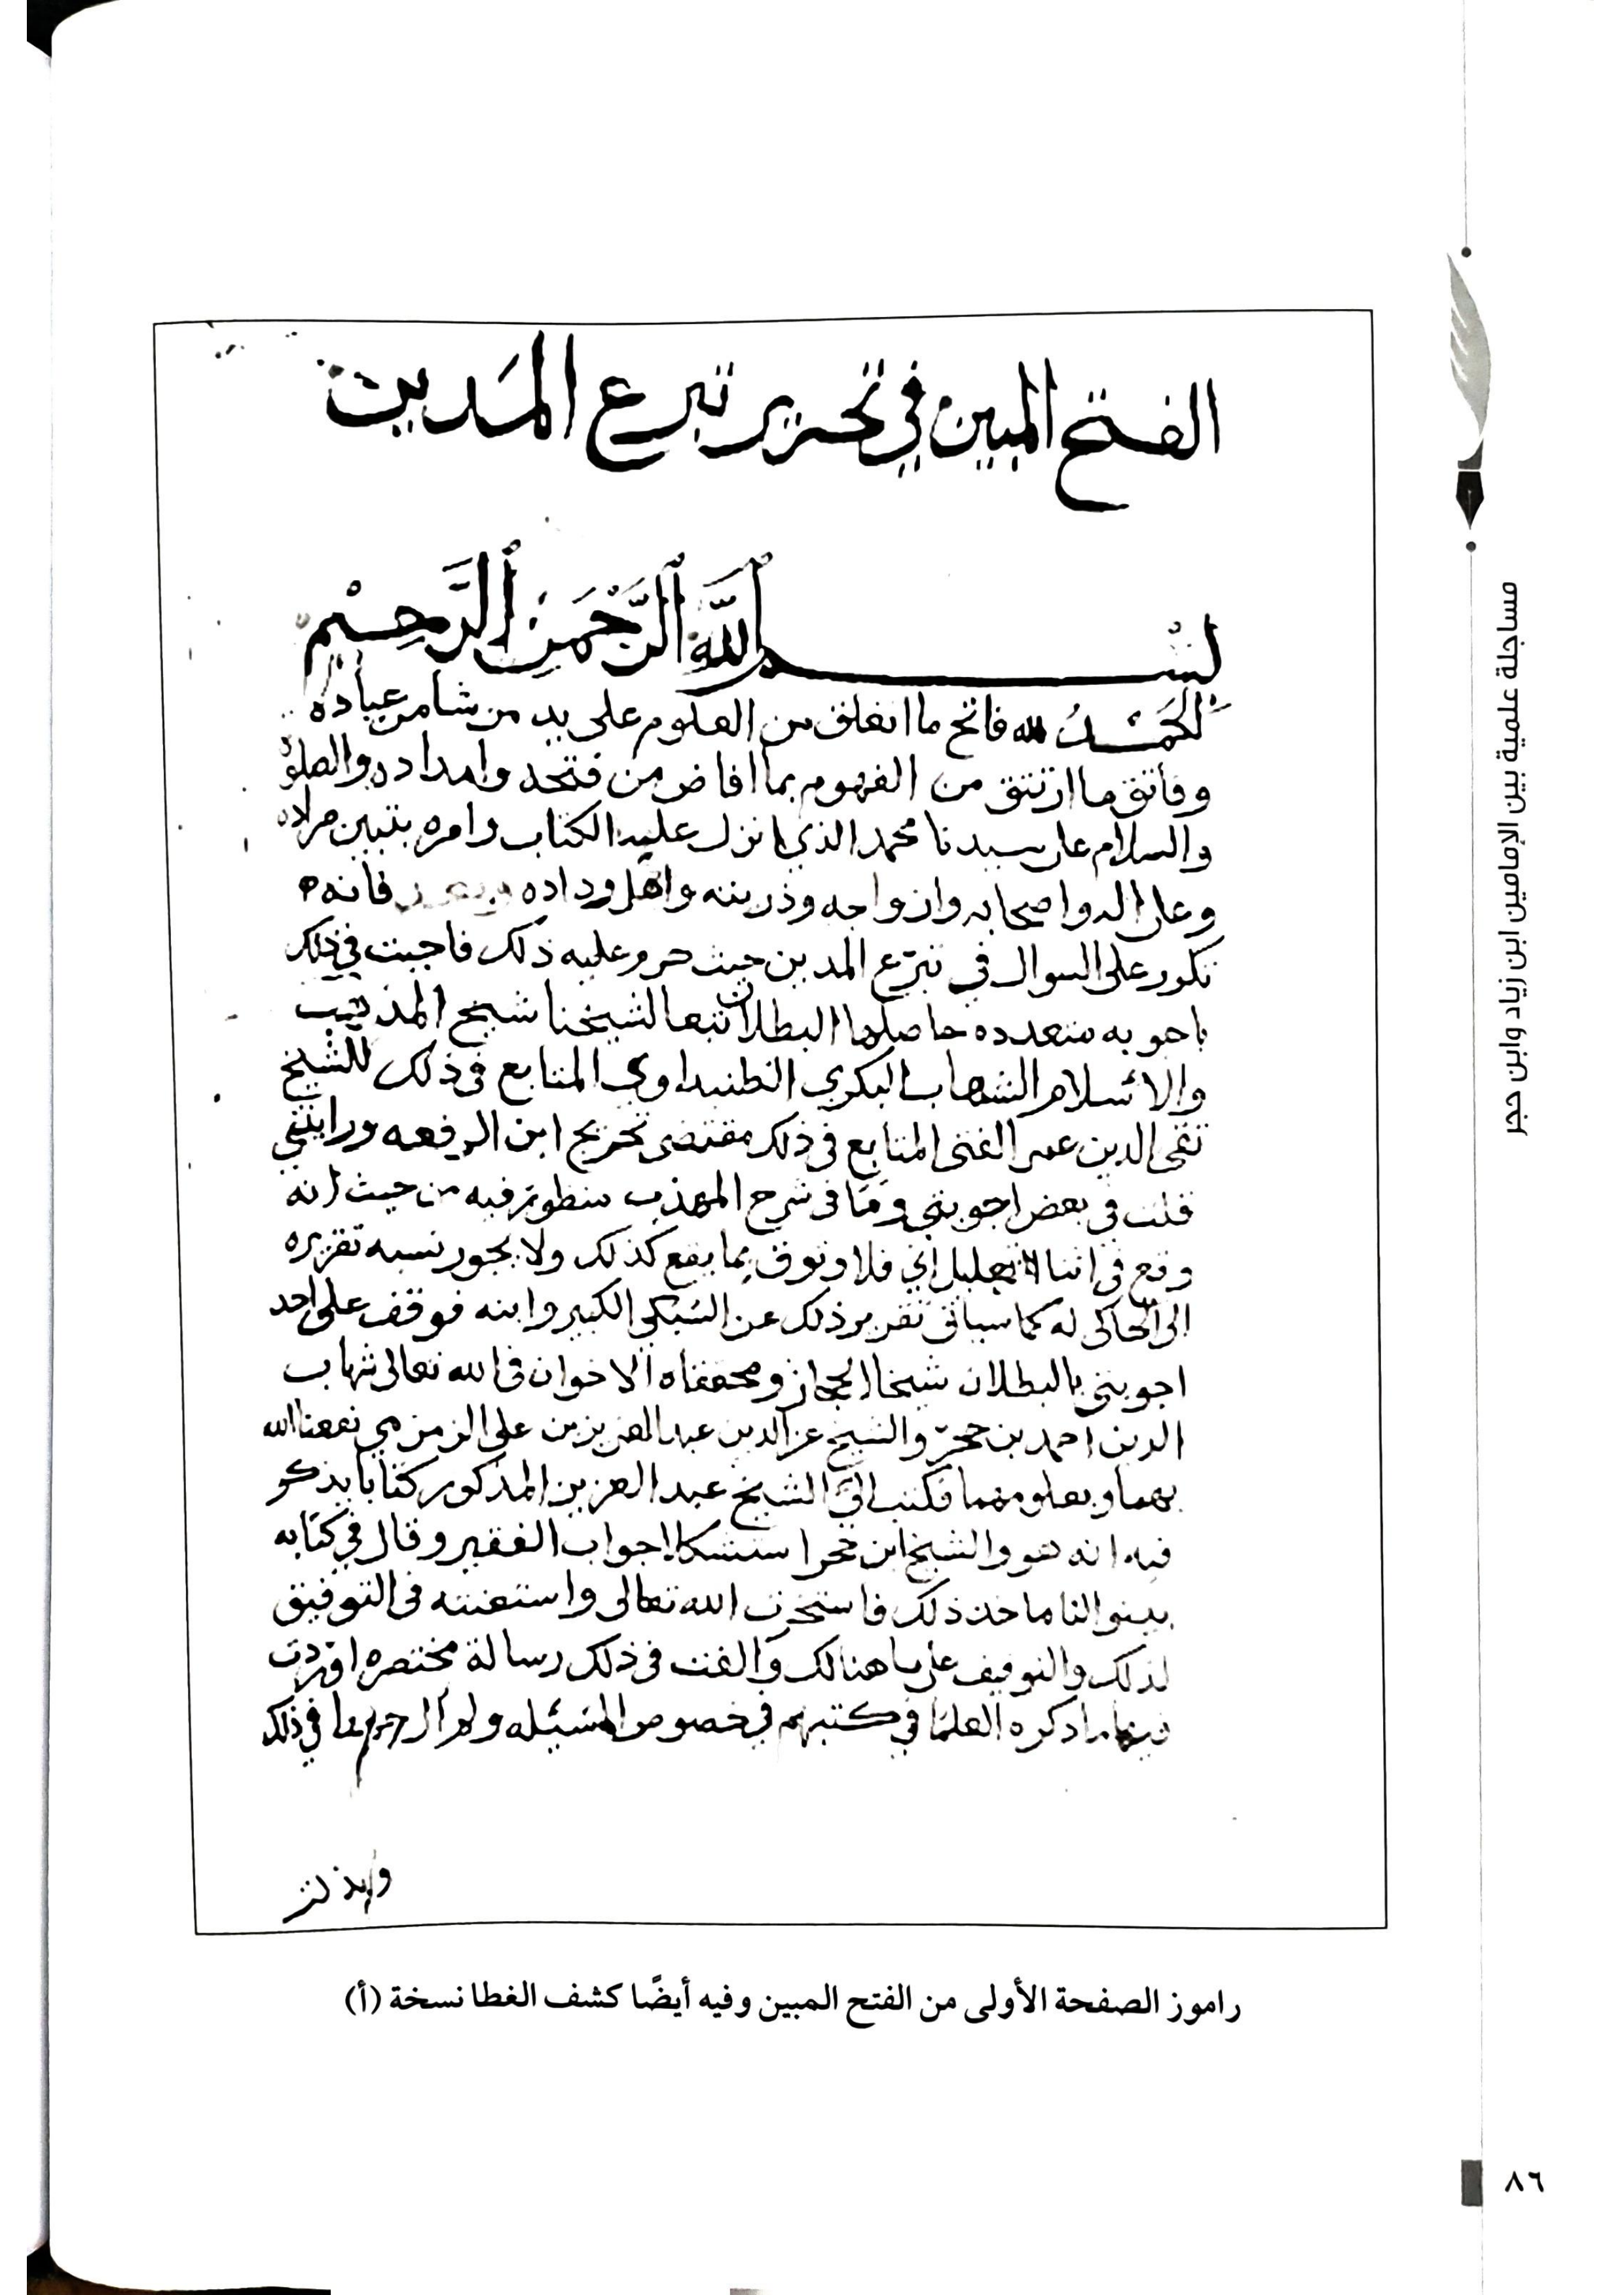 الفتح المبين في تحرير تبرع المدين
بسم اللَّه الرَّحْمَن الرَّحِيْم
الحَمْدُ لله فاتح ما انغلق من العلوم على يد من شا من عباده
وفاتق ما ارتتق من الفهوم بما افاض من فتحه وامداده والصلوة
والسلام على سيدنا محمد الذي انزل عليه الكتاب وامره بتبيين مراده
وعلى اله واصحابه وازواجه وذريته واهل وداده وبعد فانه
تكرر على السوال في تبرّع المدين حيث حرم عليه ذلك فاجبت في ذلك
باجوبه متعدده حاصلها البطلان تبعا لشيخنا شيخ المذهب
والاسلام الشهاب البكري الطنبداوي المتابع في ذلك للشيخ
تقى الدين عمر الفتى المتابع في ذلك مقتضى تخريج ابن الرفعه ورايتني
قلت في بعض اجوبتي وما في شرح المهذب منظور فيه من حيث انه
وقع في اثنا تعليل اي فلا وثوق بما يقع كذلك ولا يجوز نسبه تقريره
الى الحاكى له كما سياتى تقرير ذلك عن السبكي الكبير وابنه فوقف على احد
اجوبتي بالبطلان شيخا الحجاز ومحققاه الاخوان في الله تعالى شهاب
الدين احمد بن حجر والشيخ عز الدين عبد العزيز بن على الزمزمي نفعنا الله
بهما وبعلومهما فكتب اليّ الشيخ عبد العزيز المذكور كتابا يذكر
فيه انه هو والشيخ ابن حجر استشكلا جواب الفقير وقال في كتابه
بينوا لنا ماخذ ذلك فاستخرت الله تعالى واستعنته في التوفيق
لذلك والتوقيف على ما هنالك والفت في ذلك رسالة مختصره اوردت
فيها ما ذكره العلما في كتبهم في خصوص المسئله ولم ار جميعا في ذلك
راموز الصفحة الأولى من الفتح المبين وفيه أيضًا كشف الغطا نسخة (أ)
مساجلة علمية بين الإمامين ابن زياد وابن حجر
٨٦